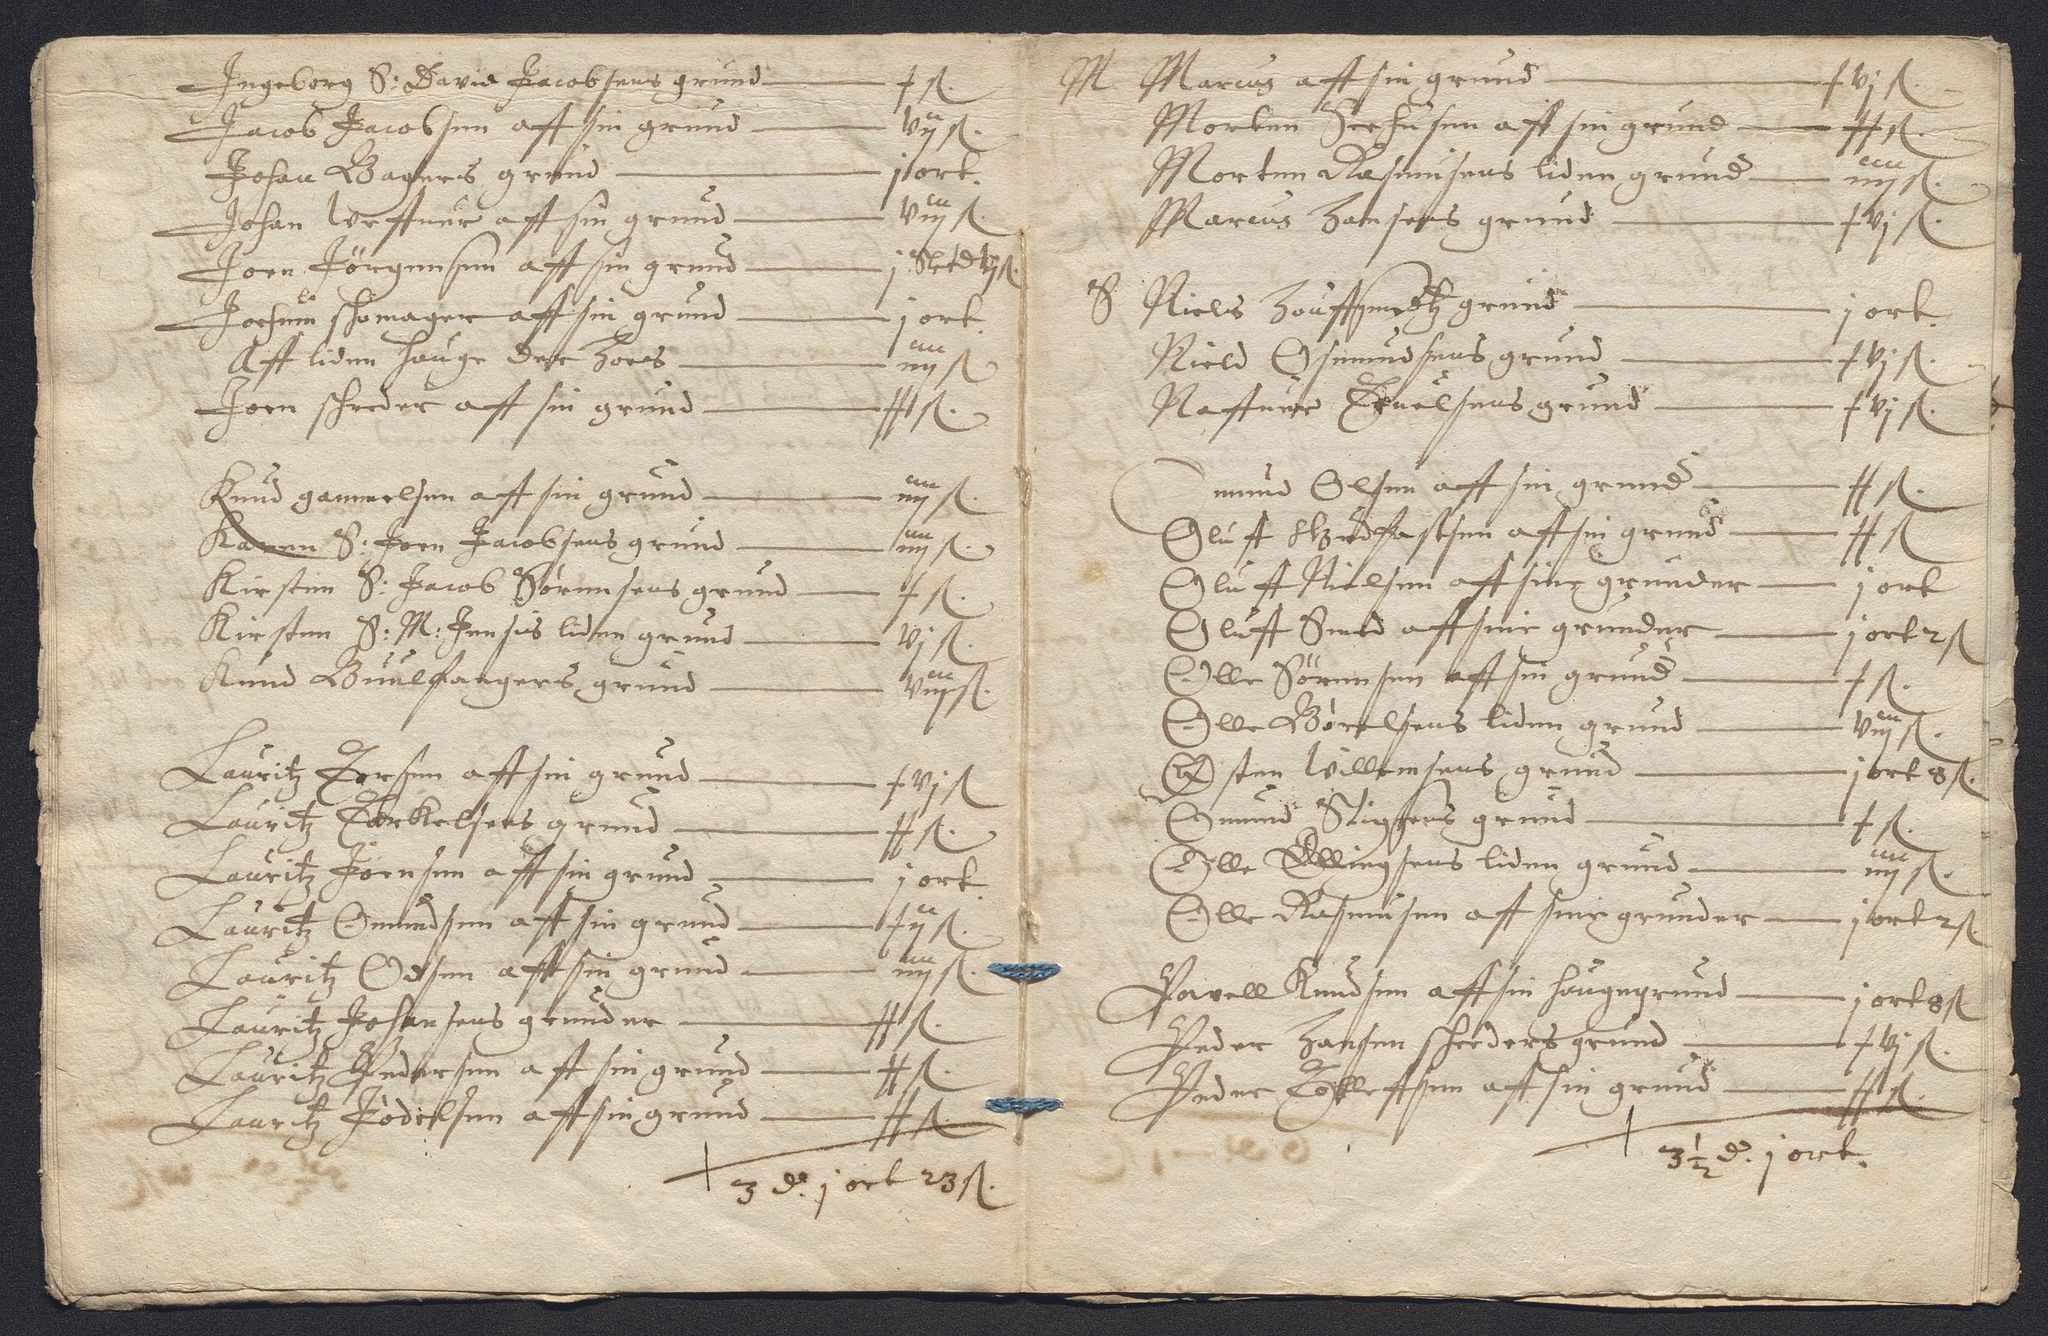 Ingeborg S: David Jacobsens grund — x ß.
Jacob Jacobsen aff sin grund — vij ß.
Johan Bagers grund — j ort.
Johan aff sin grund — viij ß.
Joen Jørgensen aff sin grund — j Sletd vj ß.
Jochum schomager aff sin grund — j ort.
Aff liden hauge der hoes — iiij ß
Joen schreder aff sin grund — ß.
Knud gammelsen aff sin grund — iiij ß.
Karen S: Joen Jacobsens grund — iiij ß.
Kirsten S: Jacob Sørensens grund — x ß.
Kirsten S: M: Jensis liden grund — vj ß.
Knud grund — viij ß.
Lauritz Iversen aff sin grund — xvj ß
Lauritz Torkelsens grund — xx ß.
Lauritz Joensen aff sin grund — j ort.
Lauritz Omundsen aff sin grund — xij ß.
Lauritz Odsen aff sin grund — iiij ß.
Lauritz Johansens grunder — xx ß.
Lauritz Pedersen aff sin grund — xx ß.
Lauritz aff sin grund — xx ß.
3 d. j ort 23 ß.
M Marcus aff sin grund — xvj ß.
Morten Seehusen aff sin grund — xx ß.
Morten Rasmusens liden grund — iiij ß.
Marcus Hansens grund — xvj ß.
Niels grund — j ort.
Nield Osmundsens grund — xvj ß.
grund — xvj ß.
mund Olsen aff sin grund — xx ß.
Oluff aff sin grund — xx ß
Oluff Nielsen aff sine grunder — j ort
Oluff Smed aff sine grunder — j ort 2 ß
Olle Sørensen aff sin grund — x ß.
Olle liden grund — viij ß.
Østen Villemsens grund — j ort 8 ß.
Omund grund — x ß.
Olle Ellingsens liden grund — iiij ß.
Olle Rasmusen aff sine grunder — j ort 2 ß.
Povell Knudsen aff sin haugegrund — j ort 8 ß
Peder Hansen schreders grund — xvj ß.
Peder Tolleffsen aff sin grund — xx ß.
3 1/2 d. j ort.